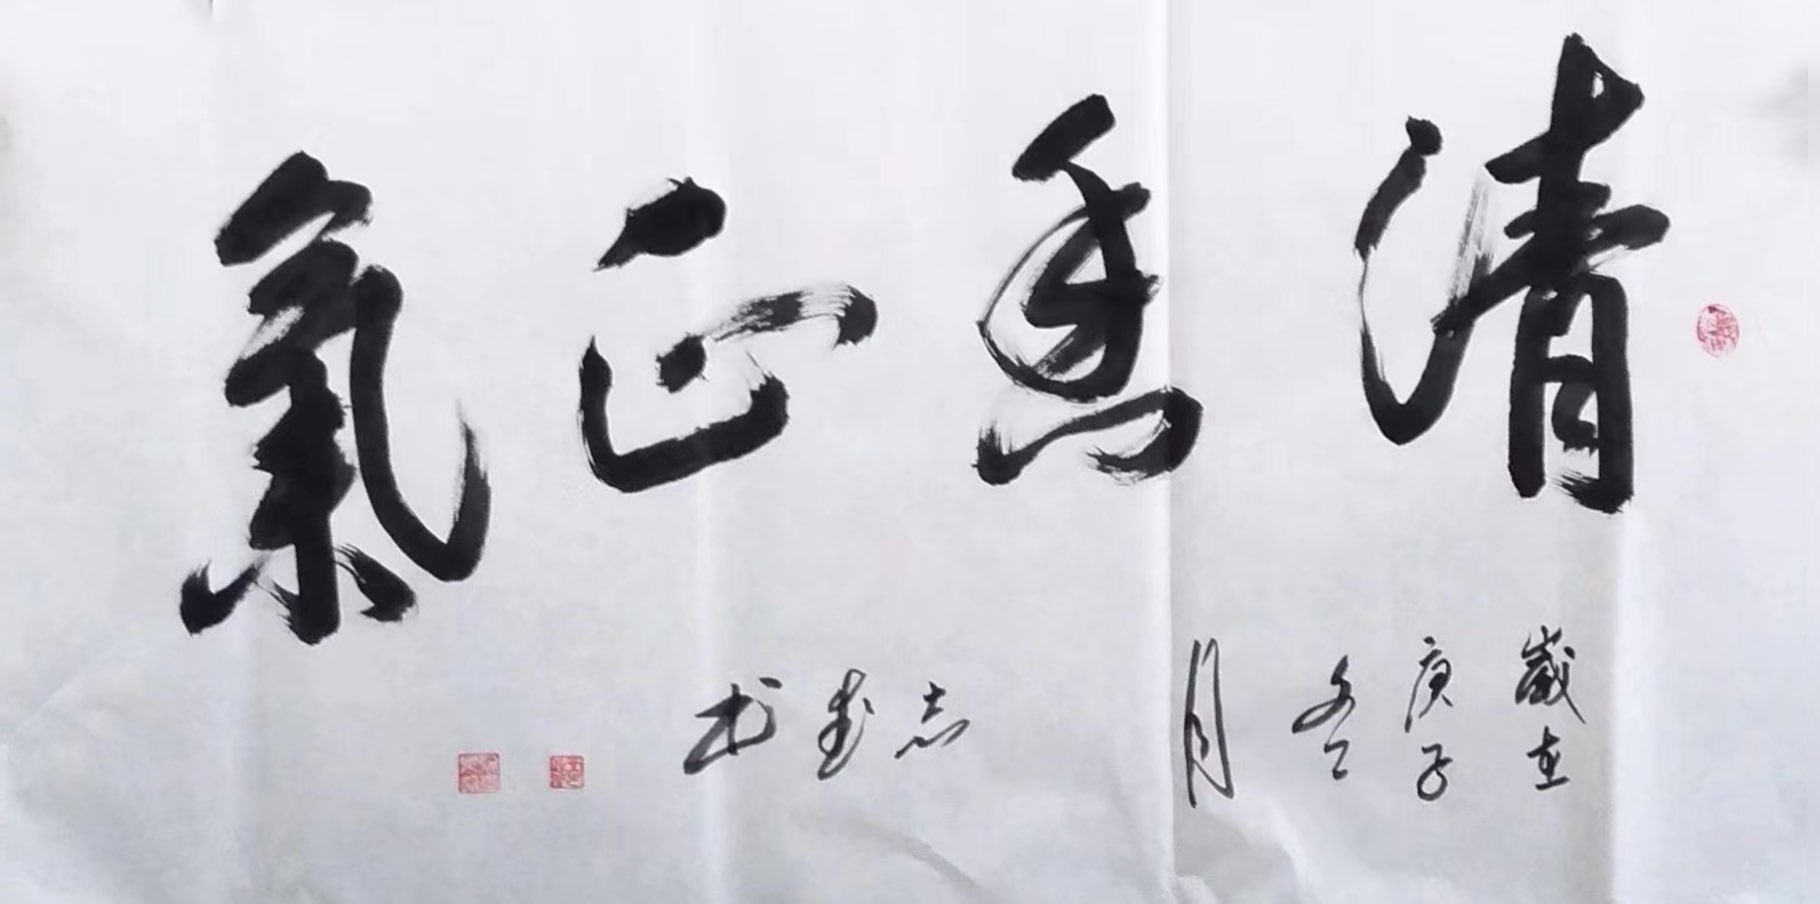 清香正氣
歲在
庚子
冬
月
志武书